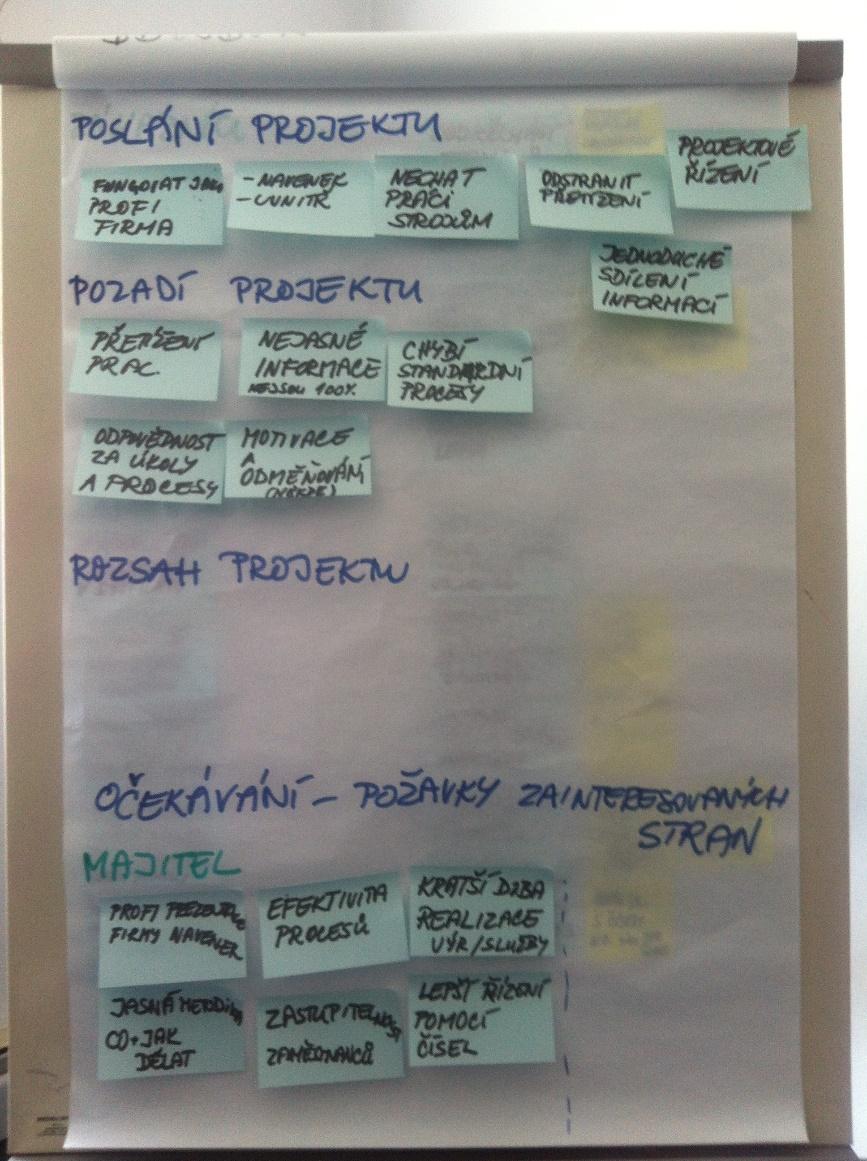 POSLÁNÍ PROJEKTU
FUNGOVAT JAKO
PROFI
FIRMA
- NAVENEK
- UVNITŘ
NECHAT
PRÁCI
STROJŮM
ODSTRANIT
PŘETÍŽENÍ
PROJEKTOVÉ
ŘÍZENÍ
JEDNODUCHÉ
SDÍLENÍ
INFORMACÍ
POZADÍ PROJEKTU
PŘETÍŽENÍ
PRAC.
NEJASNÉ
INFORMACE
NEJSOU 100%
CHYBÍ
STANDARDNÍ
PROCESY
ODPOVĚDNOST
ZA ÚKOLY
A PROCESY
MOTIVACE
A
ODMĚŇOVÁNÍ
ROZSAH PROJEKTU
OČEKÁVÁNÍ – POŽAVKY ZAINTERESOVANÝCH
STRAN
MAJITEL
PROFI PREZENTACE
FIRMY NAVENEK
EFEKTIVITA
PROCESŮ
KRATŠÍ DOBA
REALIZACE
VÝR/SLUŽBY
JASNÁ METODIKA
CO + JAK
DĚLAT
ZASTUPITELNOST
ZAMĚSTNANCŮ
LEPŠÍ ŘÍZENÍ
POMOCÍ
ČÍSEL